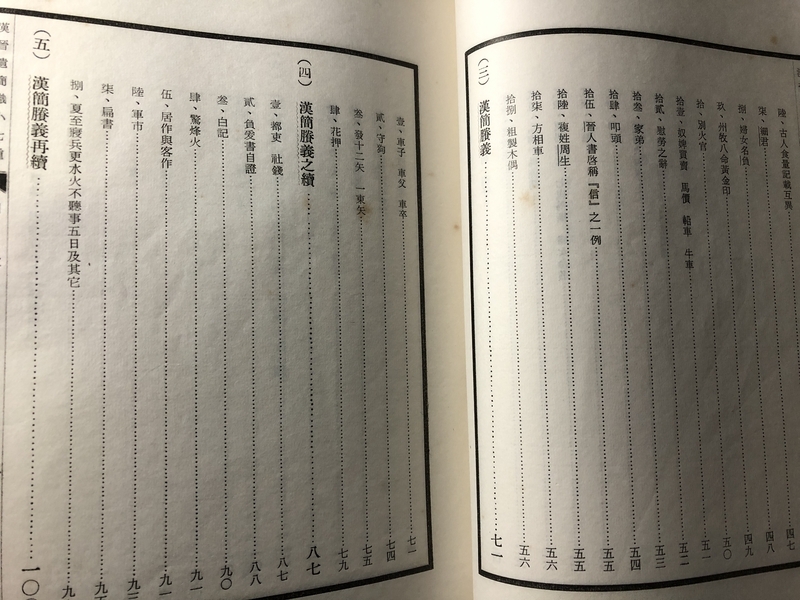 陸、古人食量記載互異 四七
柒、嗇君 四八
捌、婦女名負 四九
玖、州牧八命黃金印 五〇
拾、別火官 五一
拾壹、奴婢買賣 馬價 軺車 牛車 五二
拾貳、慰勞之辭 五三
拾叁、家弟 五四
拾肆、叩頭 五五
拾伍、晉人書啓稱『信』之一例 五五
拾陸、複姓周生 五六
拾柒、方相車 五六
拾捌、粗製木偶
(三) 漢簡賸義 七一
壹、車子 車父 車卒 七一
貳、守狗 七四
叁、發十二矢 一束矢 七五
肆、花押 七九
(四) 漢簡賸義之續 八七
壹、都吏 社錢 八七
貳、負爰書自證 八八
叁、白記 九〇
肆、驚烽火 九一
伍、居作與客作 九一
陸、軍市 九三
柒、扁書
捌、夏至寢兵更水火不聽事五日及其它
(五) 漢簡賸義再續